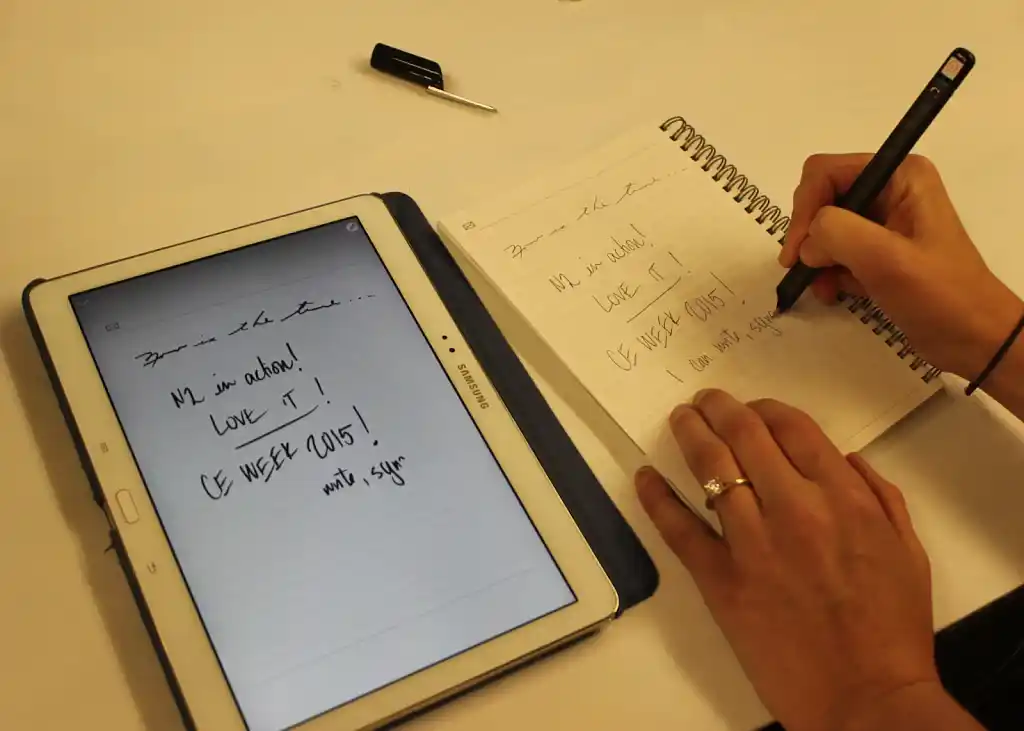 is the time ...
N2 in action!
LOVE IT!
CE WEEK 2015!
write, sym
SAMSUNG
is the time ...
N2 in action!
LOVE IT!
CE WEEK 2015!
I can write, sym